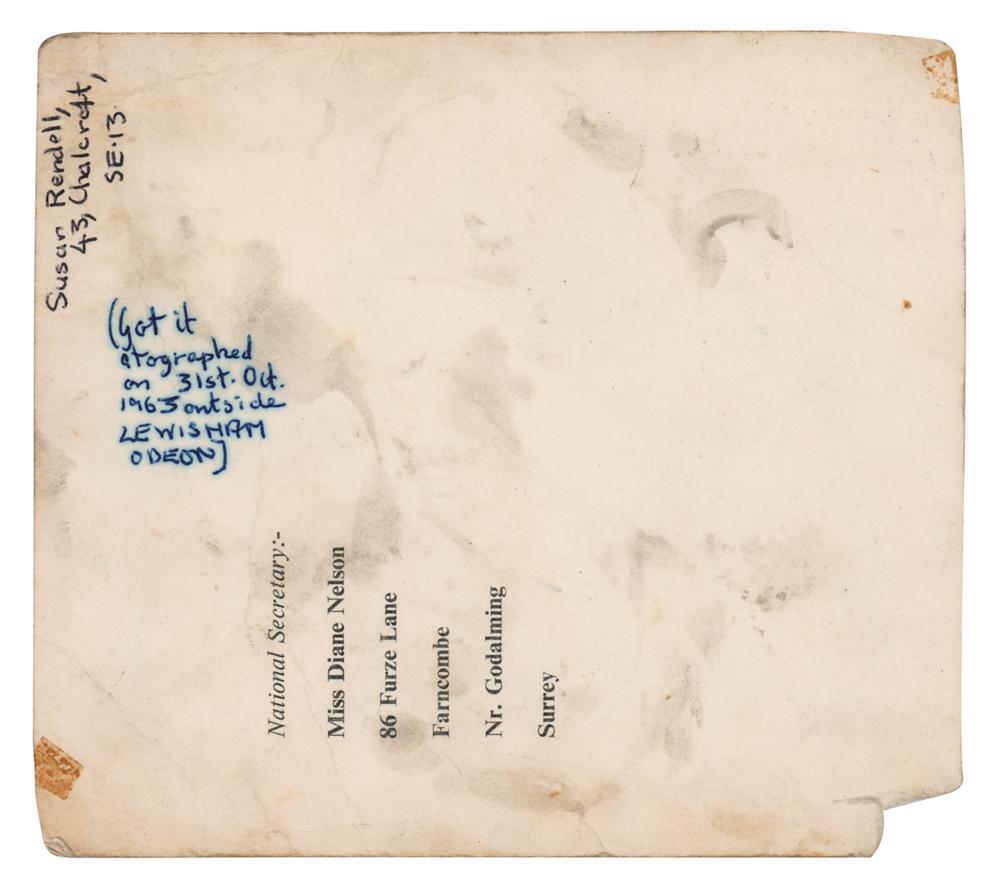 Susan Rendell,
43, Chalcroft,
SE.13.
(Got it
atographed
on 31st. Oct.
1963 outside
LEWISHAM
ODEON)
National Secretary:-
Miss Diane Nelson
86 Furze Lane
Farncombe
Nr. Godalming
Surrey